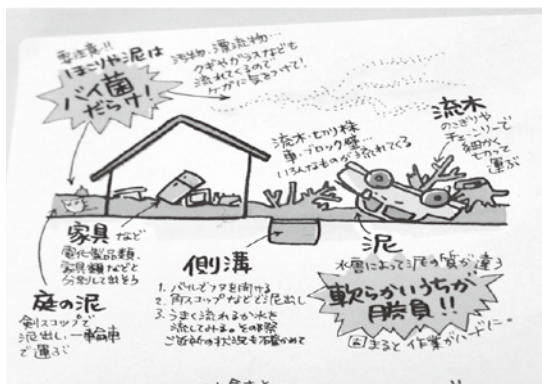 要注意!!
ほこりや泥は
バイ菌
だらけ!
汚物・漂流物…
クギやガラスなども
流れてくるので
ケガに気をつけて!
流木・切り株
車・ブロック塀…
いろんなものが流れてくる
流木
のこぎりや
チェーンソーで
細かく
切って
運ぶ
家具など
電化製品類、
家具類などと
分別して出そう
庭の泥
剣スコップで
泥出し、一輪車
で運ぶ
側溝
1. バールでフタを開ける
2. 角スコップなどで泥出し
3. うまく流れるか水を
流してみる。その際
ご近所の状況も不要かめて
泥
水層によって泥の質が違う
軟らかいうちが
勝負!!
固まると作業がハードに。